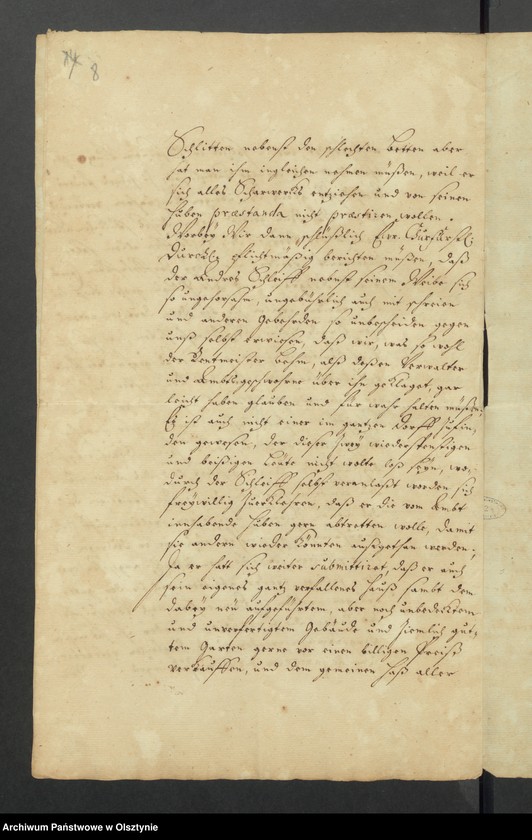 8
Schlitten nebenst den schlechten betten aber
hat man ihm ingleichen nehmen müßen, weil er
sich alles Scharwercks entziehen und von seinen
huben præstanda nicht præstiren wollen.
Worbey Wir dann schlüßlich Ewr. Churfürstl:
Durchl: pflichtmäßig berichten müßen, daß
der Andres Schleiff nebenst seinem Weibe sich
so ungehorsahm, ungebührlich auch mit schreien
und anderen Gebehrden so unbescheiden gegen
unß selbst erwiesen, daß wir, was so wohl
der Rentmeister Behm, alß deßen Verwalter
und Ambtsgeschworne über ihn geklaget, gar
leicht haben glauben und für wahr halten müßen,
Es ist auch nicht einer im gantzen Dorff
den gewesen, der dieser zwey wiederspenstigen
und beißigen Leüte nicht wolte loß seyn, wo-
durch der Schleiff selbst veranlaßt worden sich
freywillig zuerklähren, daß er die vom Ambt
innhabende huben gern abtretten wolle, damit
sie andern wieder könnten außgethan werden,
Ja er hatt sich weiter submittiret, daß er auch
sein eigenes gantz verfallenes Hauß sambt dem
dabey neü aufgeführtem, aber noch unbedecktem
und unverfertigtem Gebäude und ziemlich gut-
tem Garten gerne vor einen billigen Preiß
verkauffen, und dem gemeinen Haß aller
Archiwum Państwowe w Olsztynie